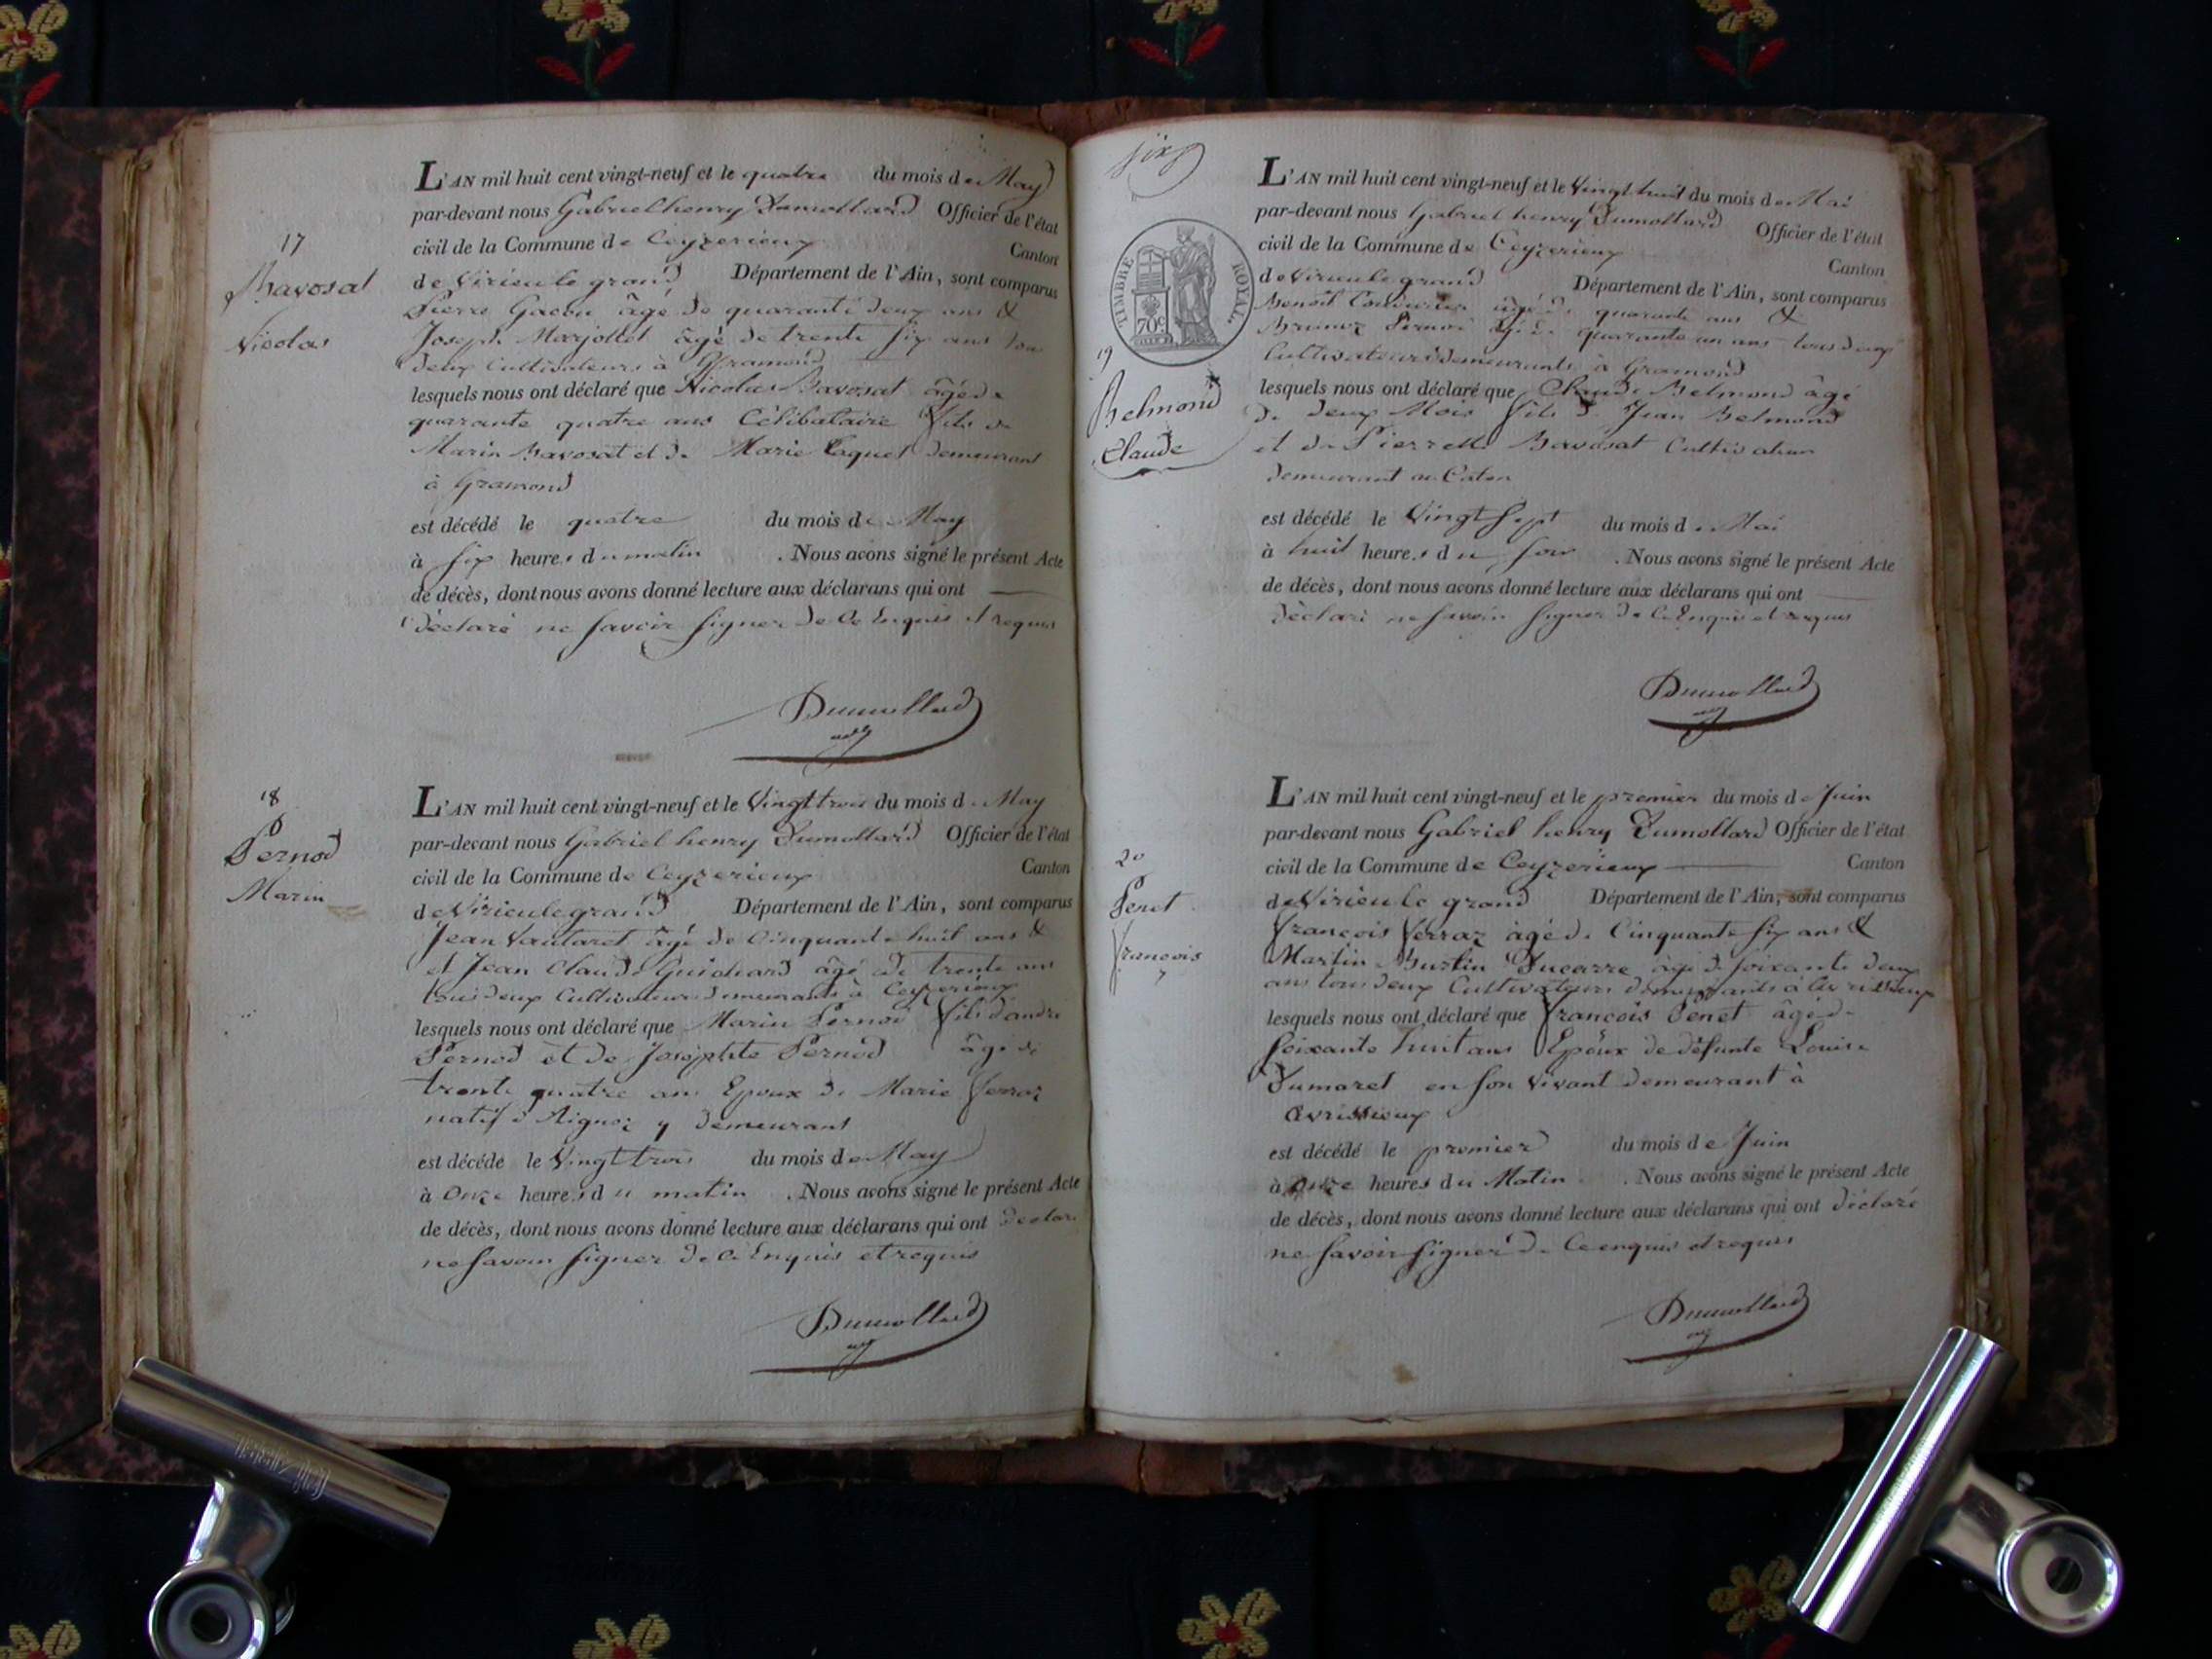 17
Bavosat
Nicolas
L'AN mil huit cent vingt-neuf et le quatre du mois de May
par-devant nous Gabriel henry Dumollard Officier de l'état
civil de la Commune de Ceyzerieux Canton
de Virieu le grand Département de l'Ain, sont comparus
Pierre Gacon âgé de quarante deux ans &
Joseph Marjollet âgé de trente six ans tous
deux Cultivateurs à Gramond
lesquels nous ont déclaré que Nicolas Bavosat âgé de
quarante quatre ans Célibataire fils de
Marin Bavosat et de Marie Caquet demeurant
à Gramond
est décédé le quatre du mois de May
à six heures du matin . Nous avons signé le présent Acte
de décès, dont nous avons donné lecture aux déclarans qui ont
déclaré ne savoir signer de ce Enquis et requis
Dumollard
18
Pernod
Marin
L'AN mil huit cent vingt-neuf et le Vingt trois du mois de May
par-devant nous Gabriel henry Dumollard Officier de l'état
civil de la Commune de Ceyzerieux Canton
de Virieu le grand Département de l'Ain, sont comparus
Jean Vautaret âgé de Cinquante huit ans &
et Jean Claude Guichard âgé de trente ans
tous deux Cultivateurs demeurants à Ceyzerieux
lesquels nous ont déclaré que Marin Pernod fils d'andré
Pernod et de Josephte Pernod âgé de
trente quatre ans Epoux de Marie Ferraz
natif d'Aignoz y demeurant
est décédé le Vingt trois du mois de May
à Onze heures du matin . Nous avons signé le présent Acte
de décès, dont nous avons donné lecture aux déclarans qui ont declaré
ne savoir signer de ce Enquis et requis
Dumollard
six
TIMBRE ROYAL
70c
19
Belmond
Claude
L'AN mil huit cent vingt-neuf et le Vingt huit du mois de Mai
par-devant nous Gabriel henry Dumollard Officier de l'état
civil de la Commune de Ceyzerieux Canton
de Virieu le grand Département de l'Ain, sont comparus
Benoit âgé de quarante ans &
Pernod âgé de quarante un ans tous deux
Cultivateurs demeurants à Gramond
lesquels nous ont déclaré que Claude Belmond âgé
de deux Mois fils de Jean Belmond
et de Pierrette Bavosat Cultivateur
demeurant au Caton
est décédé le Vingt Sept du mois de Mai
à huit heures du soir . Nous avons signé le présent Acte
de décès, dont nous avons donné lecture aux déclarans qui ont
déclaré ne savoir signer de ce Enquis et requis
Dumollard
20
Penet
François
L'AN mil huit cent vingt-neuf et le premier du mois de Juin
par-devant nous Gabriel henry Dumollard Officier de l'état
civil de la Commune de Ceyzerieux Canton
de Virieu le grand Département de l'Ain, sont comparus
François Verraz âgé de Cinquante six ans &
Martin Burtin Ducarre âgé de soixante deux
ans tous deux Cultivateurs demeurants à
lesquels nous ont déclaré que François Penet âgé de
soixante huit ans Epoux de défunte Louise
Dumaret en son vivant demeurant à
Avrissieux
est décédé le premier du mois de Juin
à Onze heures du Matin . Nous avons signé le présent Acte
de décès, dont nous avons donné lecture aux déclarans qui ont déclaré
ne savoir signer de ce enquis et requis
Dumollard